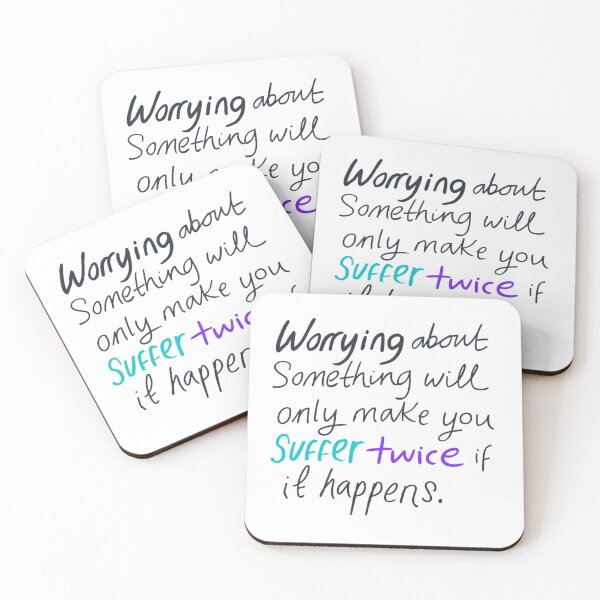 Worrying about
Something will
only make yo
ce
Worrying about
Something will
only make you
Suffer twice if
Worrying about
Something will
only make you
Suffer twic
it happen
Worrying about
Something will
only make you
Suffer twice if
it happens.